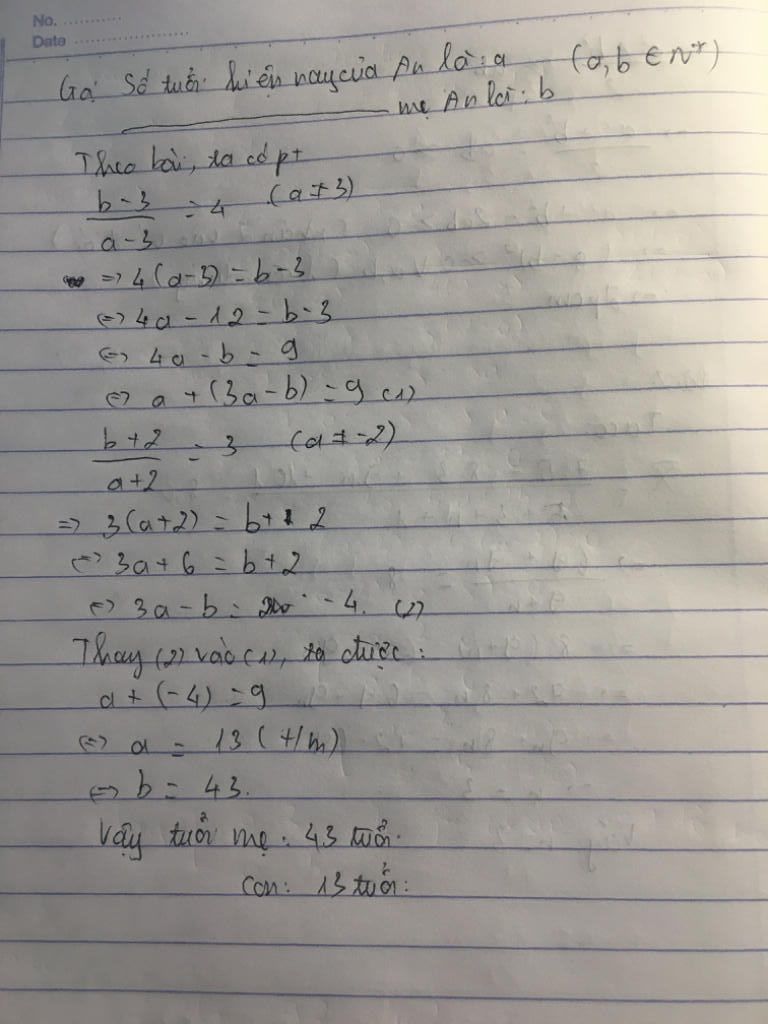 No. ............
Date ........................
Gọi Số tuổi hiện nay của An là: a (a, b ∈ N*)
mẹ An là: b
Theo bài, ta có pt
b-3/a-3 = 4 (a ≠ 3)
=> 4(a-3) = b-3
<=> 4a - 12 = b-3
<=> 4a - b = 9
<=> a + (3a-b) = 9 (1)
b+2/a+2 = 3 (a ≠ -2)
=> 3(a+2) = b+ 2
<=> 3a + 6 = b+2
<=> 3a - b = -4. (2)
Thay (2) vào (1), ta được:
a + (-4) = 9
<=> a = 13 (t/m)
<=> b = 43.
Vậy tuổi mẹ: 43 tuổi.
Con: 13 tuổi: